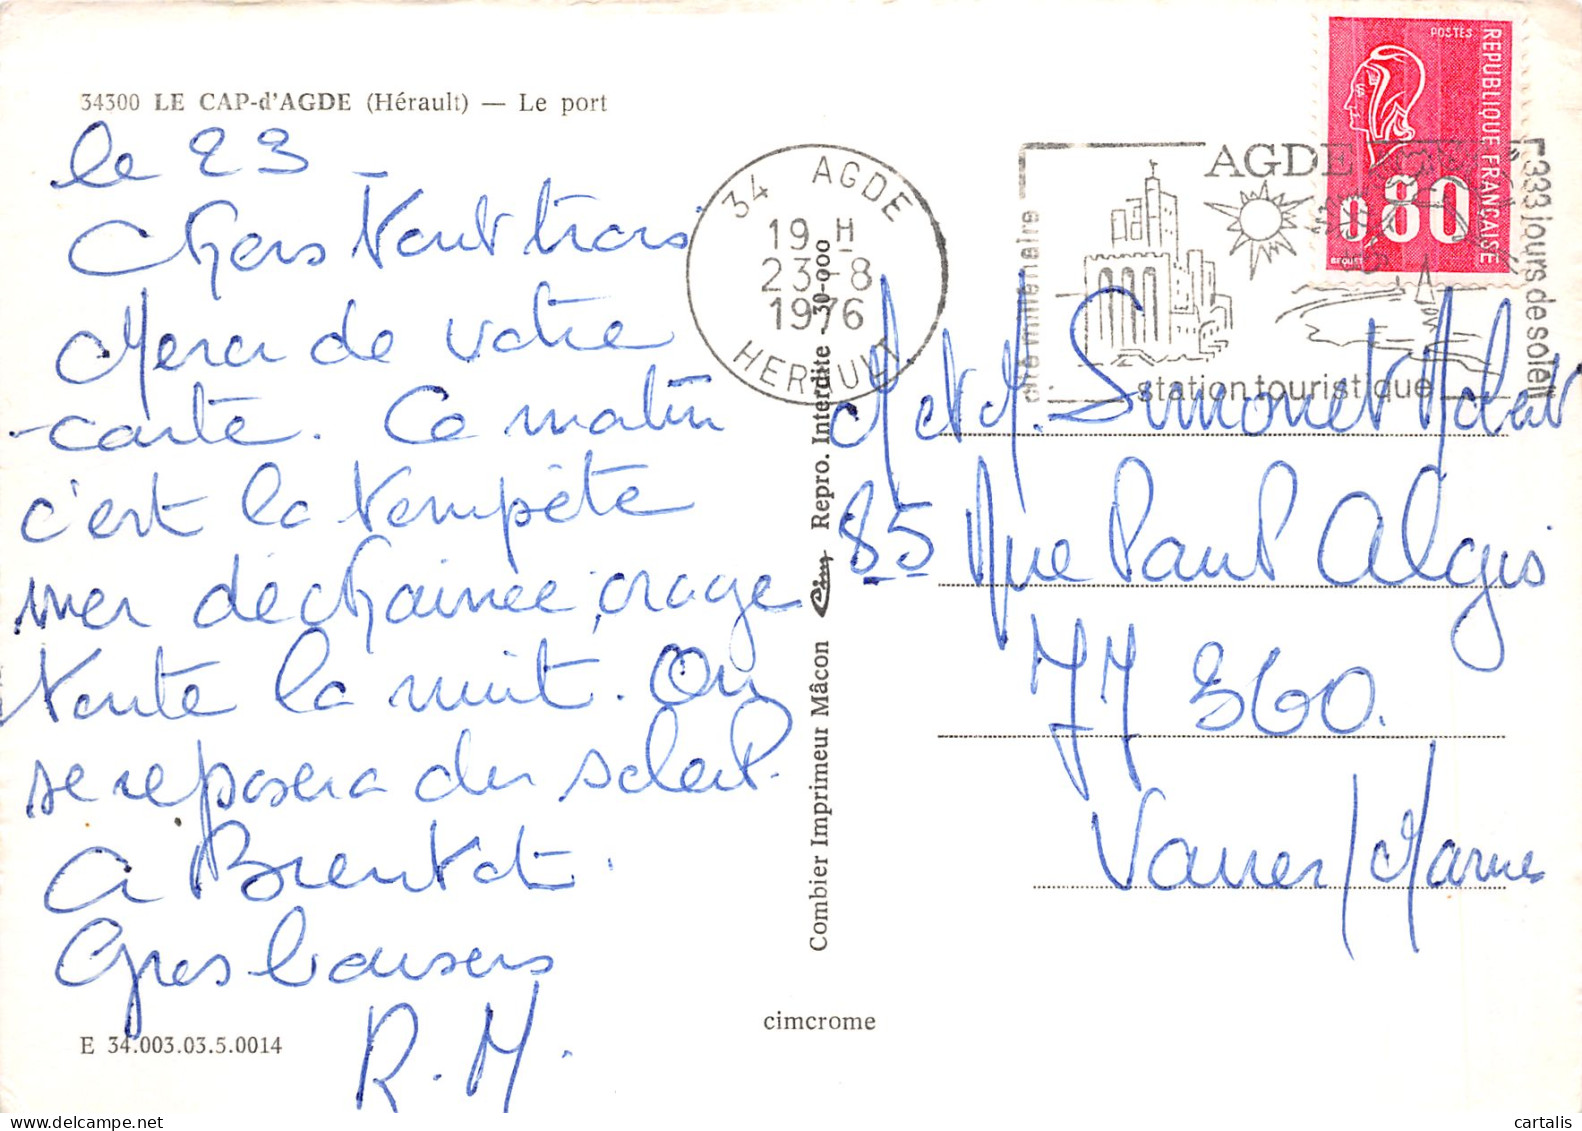 34300 LE CAP-d'AGDE (Hérault) — Le port
le 23
Chers tous trois
Merci de votre
carte. Ce matin
c'est la tempête
mer déchainée, orage
toute la nuit. On
se reposera du soleil.
A Bientôt.
Gros baisers
R.M.
E 34.003.03.5.0014
34 AGDE
19 H
23-8
1976
HERAULT
Combier Imprimeur Mâcon Cim Repro. Interdite 30-000
cimcrome
cité millénaire
AGDE
333 jours de soleil
station touristique
POSTES
REPUBLIQUE FRANÇAISE
0,80
M et M. Simonet
85 Rue Paul Algis
77 360.
Vaires/Marne
cartalis